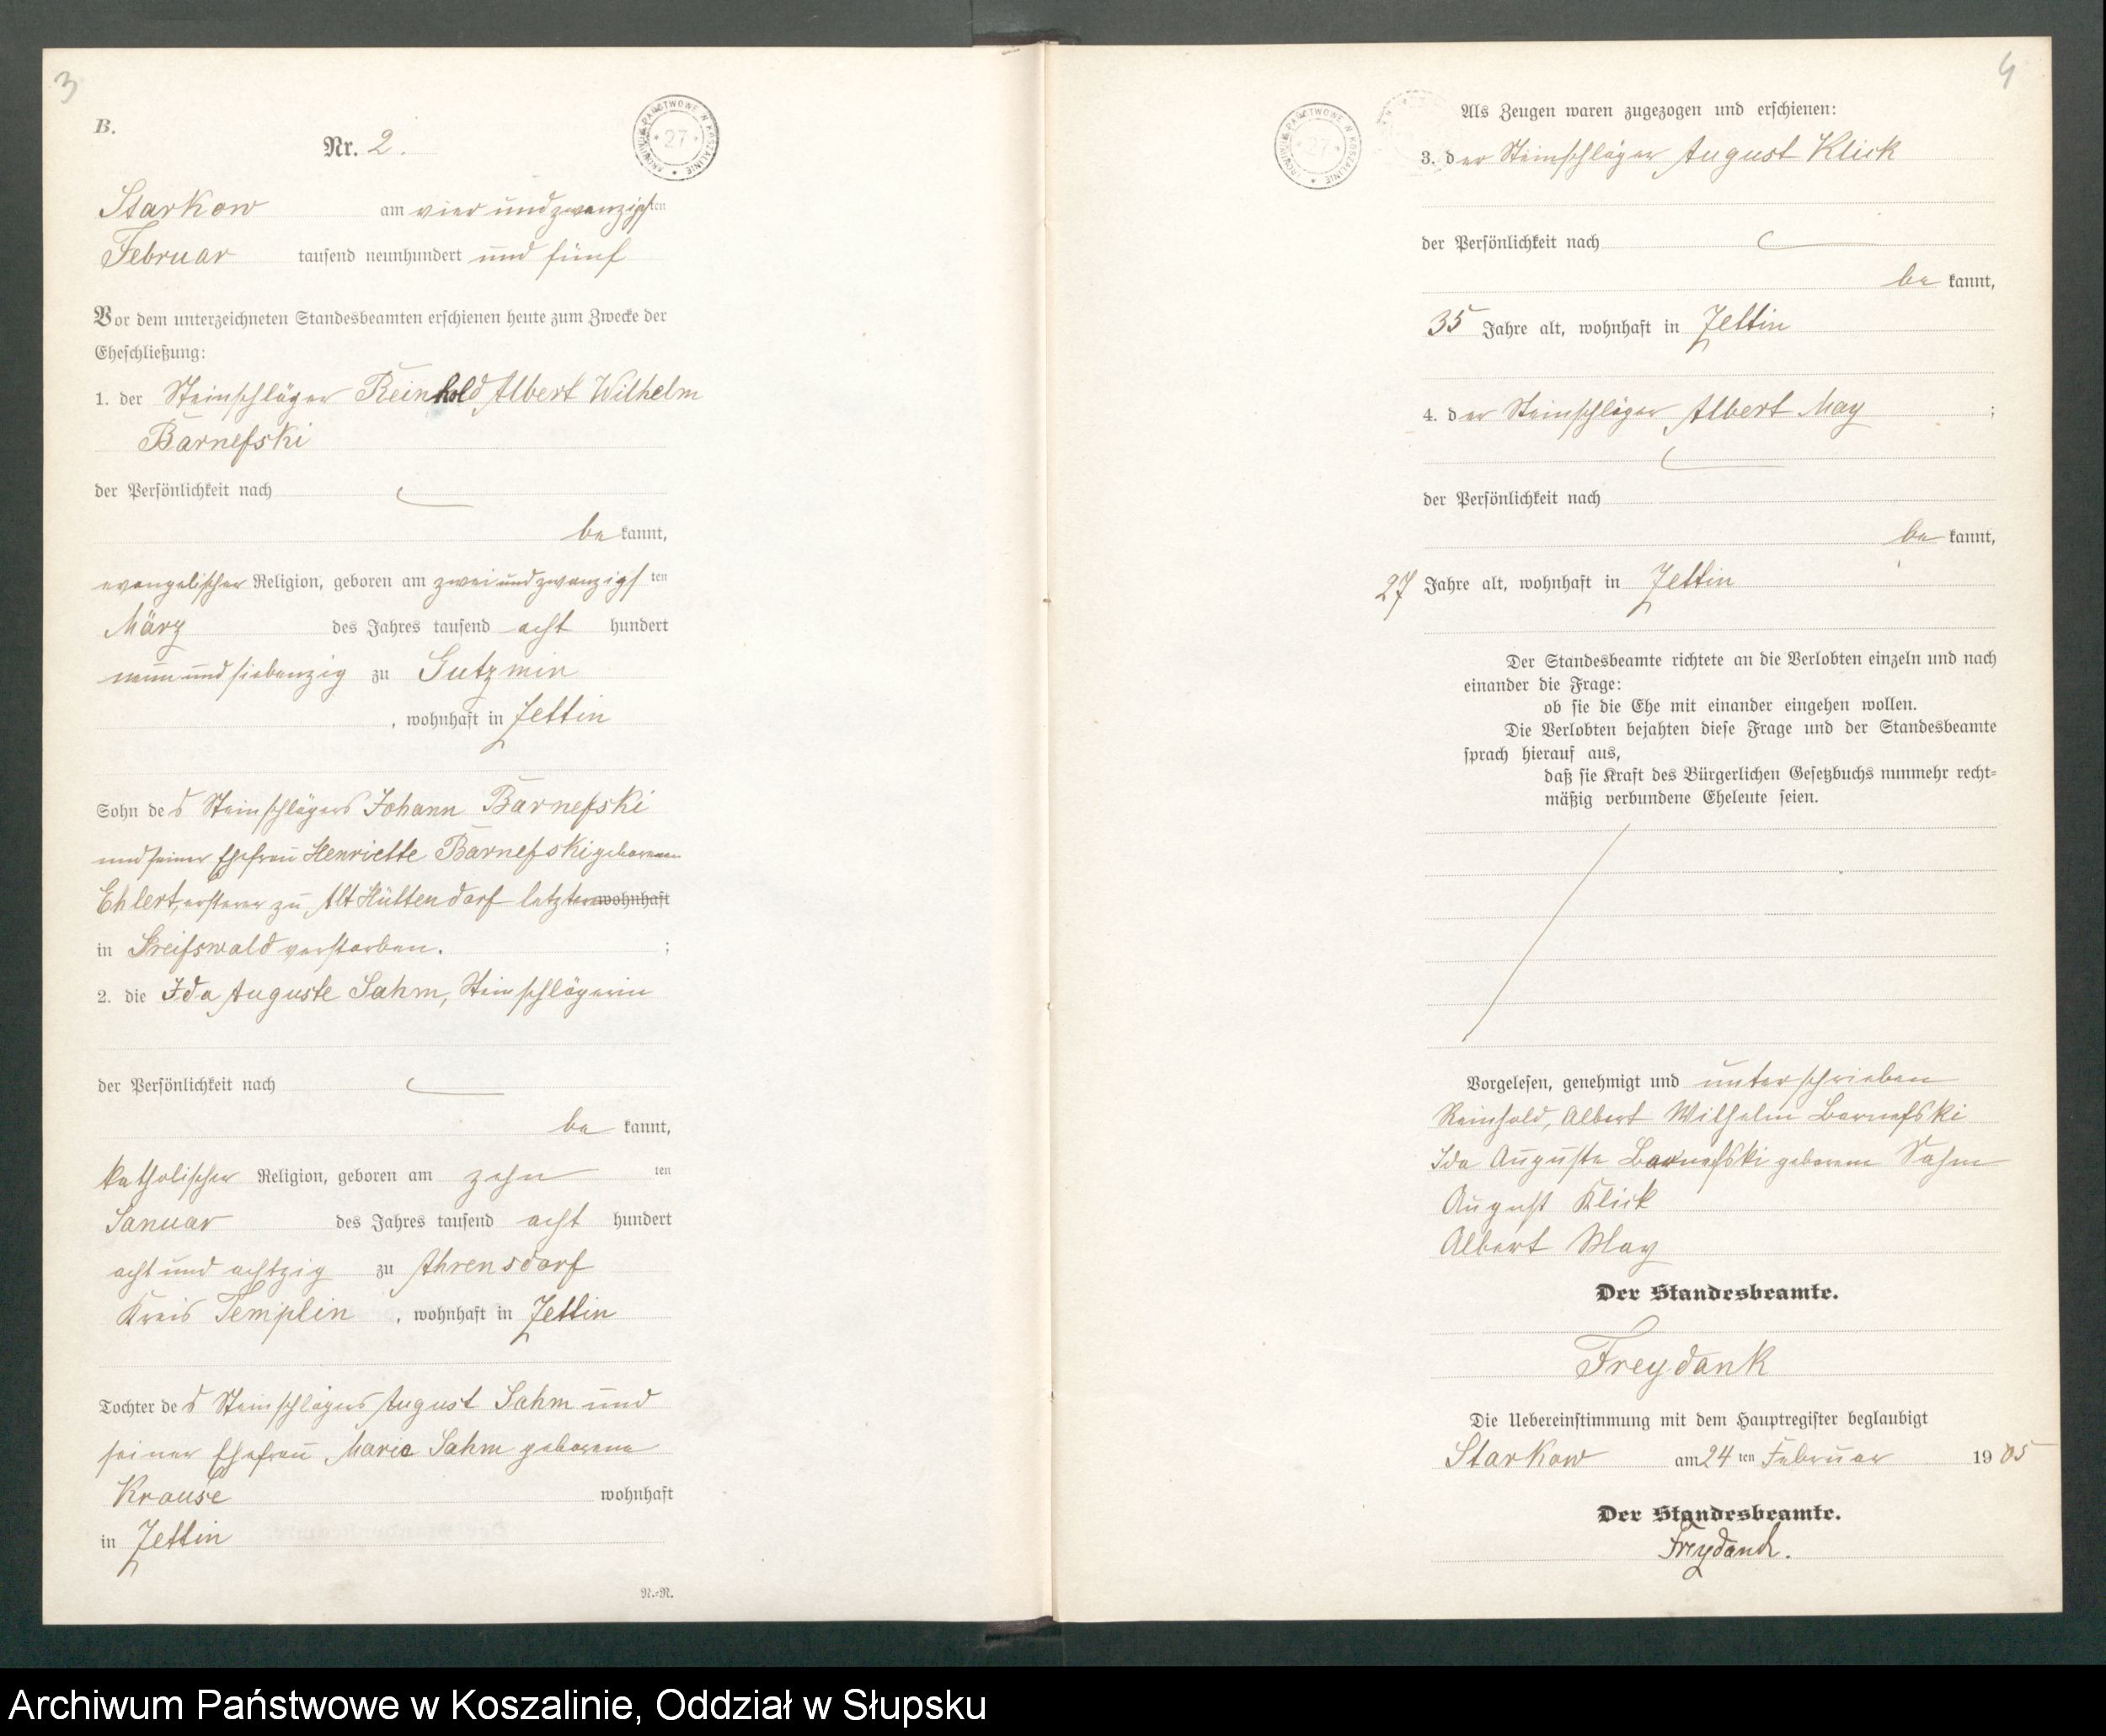 3
B.
Nr. 2.
ARCHIWUM PAŃSTWOWE W KOSZALINIE * 27 *
Starkow am vier und zwanzigsten
Februar tausend neunhundert und fünf
Vor dem unterzeichneten Standesbeamten erschienen heute zum Zwecke der
Eheschließung:
1. der Steinschläger Reinhold Albert Wilhelm
Barnefski
der Persönlichkeit nach
be kannt,
evangelischer Religion, geboren am zwei und zwanzigsten
März des Jahres tausend acht hundert
neun und siebenzig zu Gutzmin
, wohnhaft in Zettin
Sohn des Steinschlägers Johann Barnefski
und seiner Ehefrau Henriette Barnefski geborenen
Ehlert, ersterer zu Alt Hüttendorf letztere wohnhaft
in Greifswald verstorben. ;
2. die Ida Auguste Sahm, Steinschlägerin
der Persönlichkeit nach
be kannt,
katholischer Religion, geboren am zehn ten
Januar des Jahres tausend acht hundert
acht und achtzig zu Ahrensdorf
Kreis Templin, wohnhaft in Zettin
Tochter des Steinschlägers August Sahm und
seiner Ehefrau Marie Sahm geborene
Krause wohnhaft
in Zettin
N.-N.
4
ARCHIWUM PAŃSTWOWE W KOSZALINIE * 27 *
Als Zeugen waren zugezogen und erschienen:
3. der Steinschläger August Klick
der Persönlichkeit nach
be kannt,
35 Jahre alt, wohnhaft in Zettin
4. der Steinschläger Albert May ;
der Persönlichkeit nach
be kannt,
27 Jahre alt, wohnhaft in Zettin
Der Standesbeamte richtete an die Verlobten einzeln und nach
einander die Frage:
ob sie die Ehe mit einander eingehen wollen.
Die Verlobten bejahten diese Frage und der Standesbeamte
sprach hierauf aus,
daß sie Kraft des Bürgerlichen Gesetzbuchs nunmehr recht-
mäßig verbundene Eheleute seien.
Vorgelesen, genehmigt und unterschrieben
Reinhold, Albert Wilhelm Barnefski
Ida Auguste Barnefski geborene Sahm
August Klick
Albert May
Der Standesbeamte.
Freydank
Die Uebereinstimmung mit dem Hauptregister beglaubigt
Starkow am 24 ten Februar 1905
Der Standesbeamte.
Freydank.
Archiwum Państwowe w Koszalinie, Oddział w Słupsku